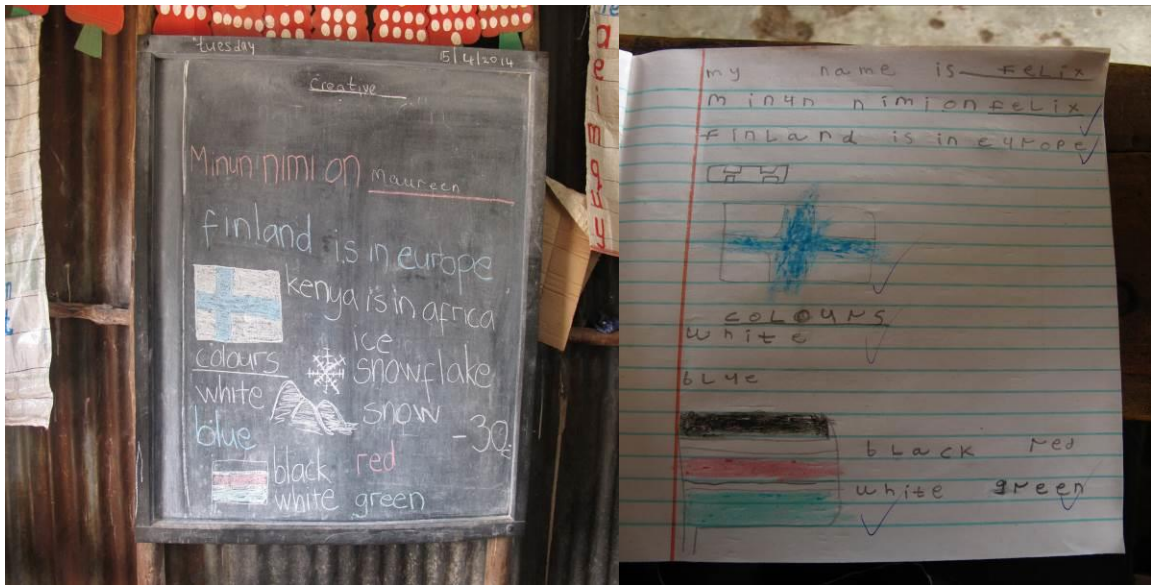 tuesday
15/4/2014
creative
Minun nimi on Maureen
finland is in europe
kenya is in africa
ice
colours
snowflake
white
snow
blue
-30
black
red
white
green
a
e
i
m
q
u
y
my name is FeLix
minun nimi on FeLix
FinLand is in europe
coLOURS
white
bLue
bLack red
white green